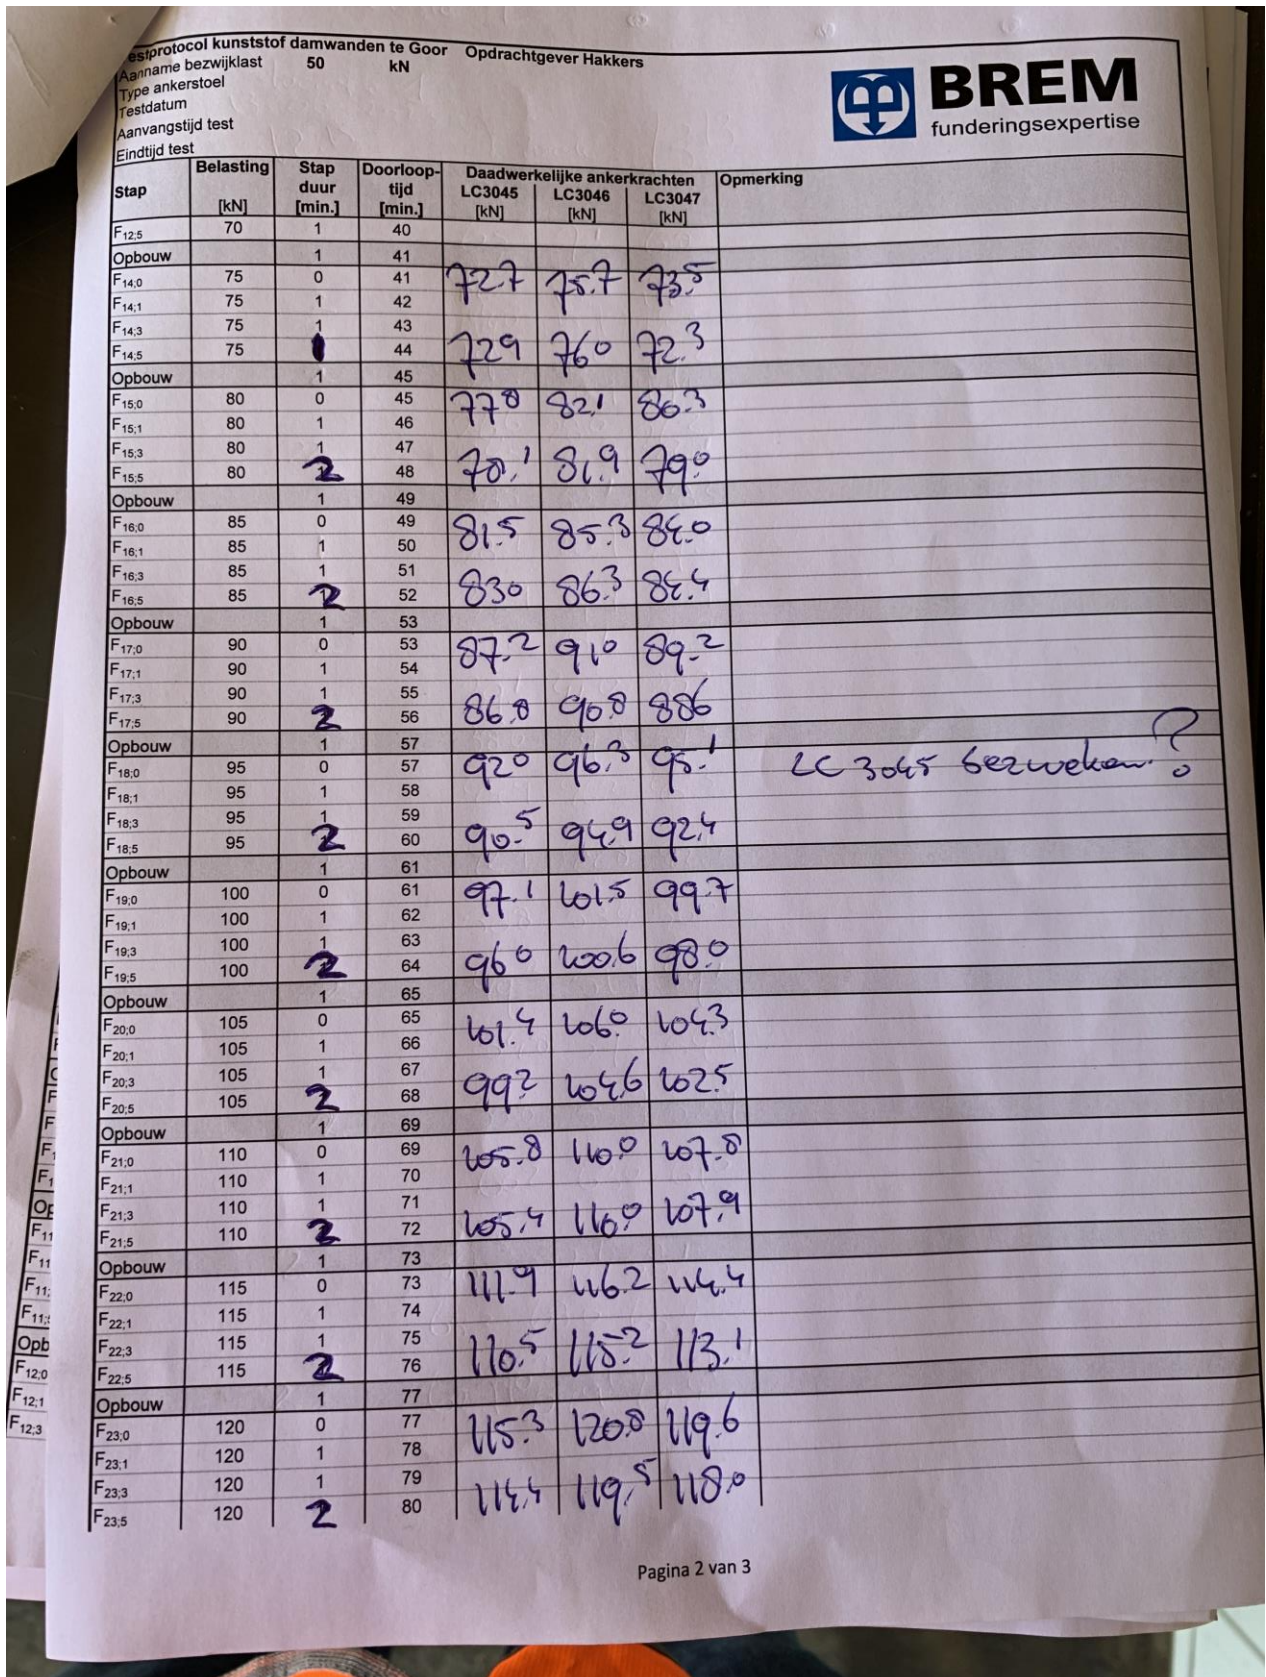 estprotocol kunststof damwanden te Goor Opdrachtgever Hakkers
Aanname bezwijklast 50 kN
Type ankerstoel
Testdatum
Aanvangstijd test
Eindtijd test
BREM
funderingsexpertise
Stap Belasting [kN] Stap duur [min.] Doorloop-tijd [min.] Daadwerkelijke ankerkrachten LC3045 [kN] LC3046 [kN] LC3047 [kN] Opmerking
F12;5 70 1 40
Opbouw 1 41
F14;0 75 0 41 72.7 75.7 73.5
F14;1 75 1 42
F14;3 75 1 43
F14;5 75 44 729 760 72.3
Opbouw 1 45
F15;0 80 0 45 778 82.1 86.3
F15;1 80 1 46
F15;3 80 1 47
F15;5 80 2 48 78.1 81.9 790
Opbouw 1 49
F16;0 85 0 49 81.5 85.3 84.0
F16;1 85 1 50
F16;3 85 1 51
F16;5 85 2 52 830 86.3 84.4
Opbouw 1 53
F17;0 90 0 53 87.2 91.0 89.2
F17;1 90 1 54
F17;3 90 1 55
F17;5 90 2 56 86.8 90.8 886
Opbouw 1 57
F18;0 95 0 57 920 96.3 95.1 LC 3045 bezweken.?
F18;1 95 1 58
F18;3 95 1 59
F18;5 95 2 60 90.5 94.9 92.4
Opbouw 1 61
F19;0 100 0 61 97.1 101.5 99.7
F19;1 100 1 62
F19;3 100 1 63
F19;5 100 2 64 960 100.6 98.0
Opbouw 1 65
F20;0 105 0 65 101.4 106.0 104.3
F20;1 105 1 66
F20;3 105 1 67
F20;5 105 2 68 992 104.6 102.5
Opbouw 1 69
F21;0 110 0 69 105.8 110.0 107.8
F21;1 110 1 70
F21;3 110 1 71
F21;5 110 2 72 105.4 110.0 107.9
Opbouw 1 73
F22;0 115 0 73 111.9 116.2 114.4
F22;1 115 1 74
F22;3 115 1 75
F22;5 115 2 76 110.5 115.2 113.1
Opbouw 1 77
F23;0 120 0 77 115.3 120.8 119.6
F23;1 120 1 78
F23;3 120 1 79
F23;5 120 2 80 114.4 119.5 118.0
Pagina 2 van 3
F11
F11
F11;
F11;
Opb
F12;0
F12;1
F12;3